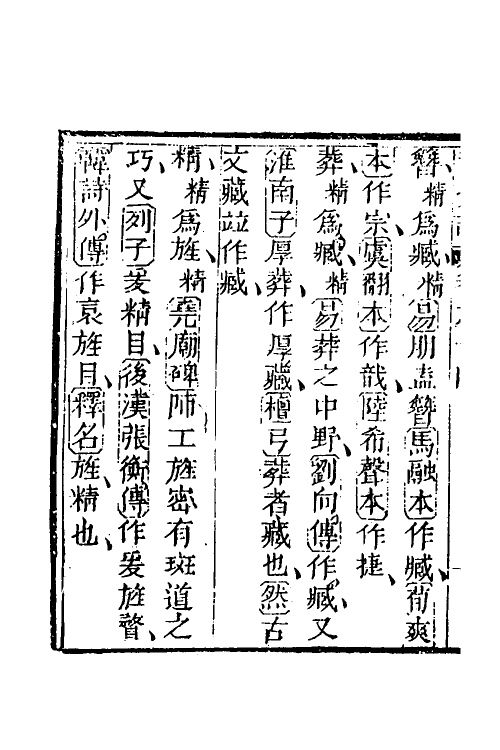 簪精爲臧精易朋盍簪馬融本作臧荀爽
本作宗虞翻本作戠陸希聲本作捷
葬精爲臧精易葬之中野劉向傳作臧又
淮南子厚葬作厚藏檀弓葬者藏也然古
文藏竝作臧
精精爲旌精堯廟碑師工旌密有斑道之
巧又列子爰精目後漢張衡傳作爰旌瞀
韓詩外傳作袁旌目釋名旌精也